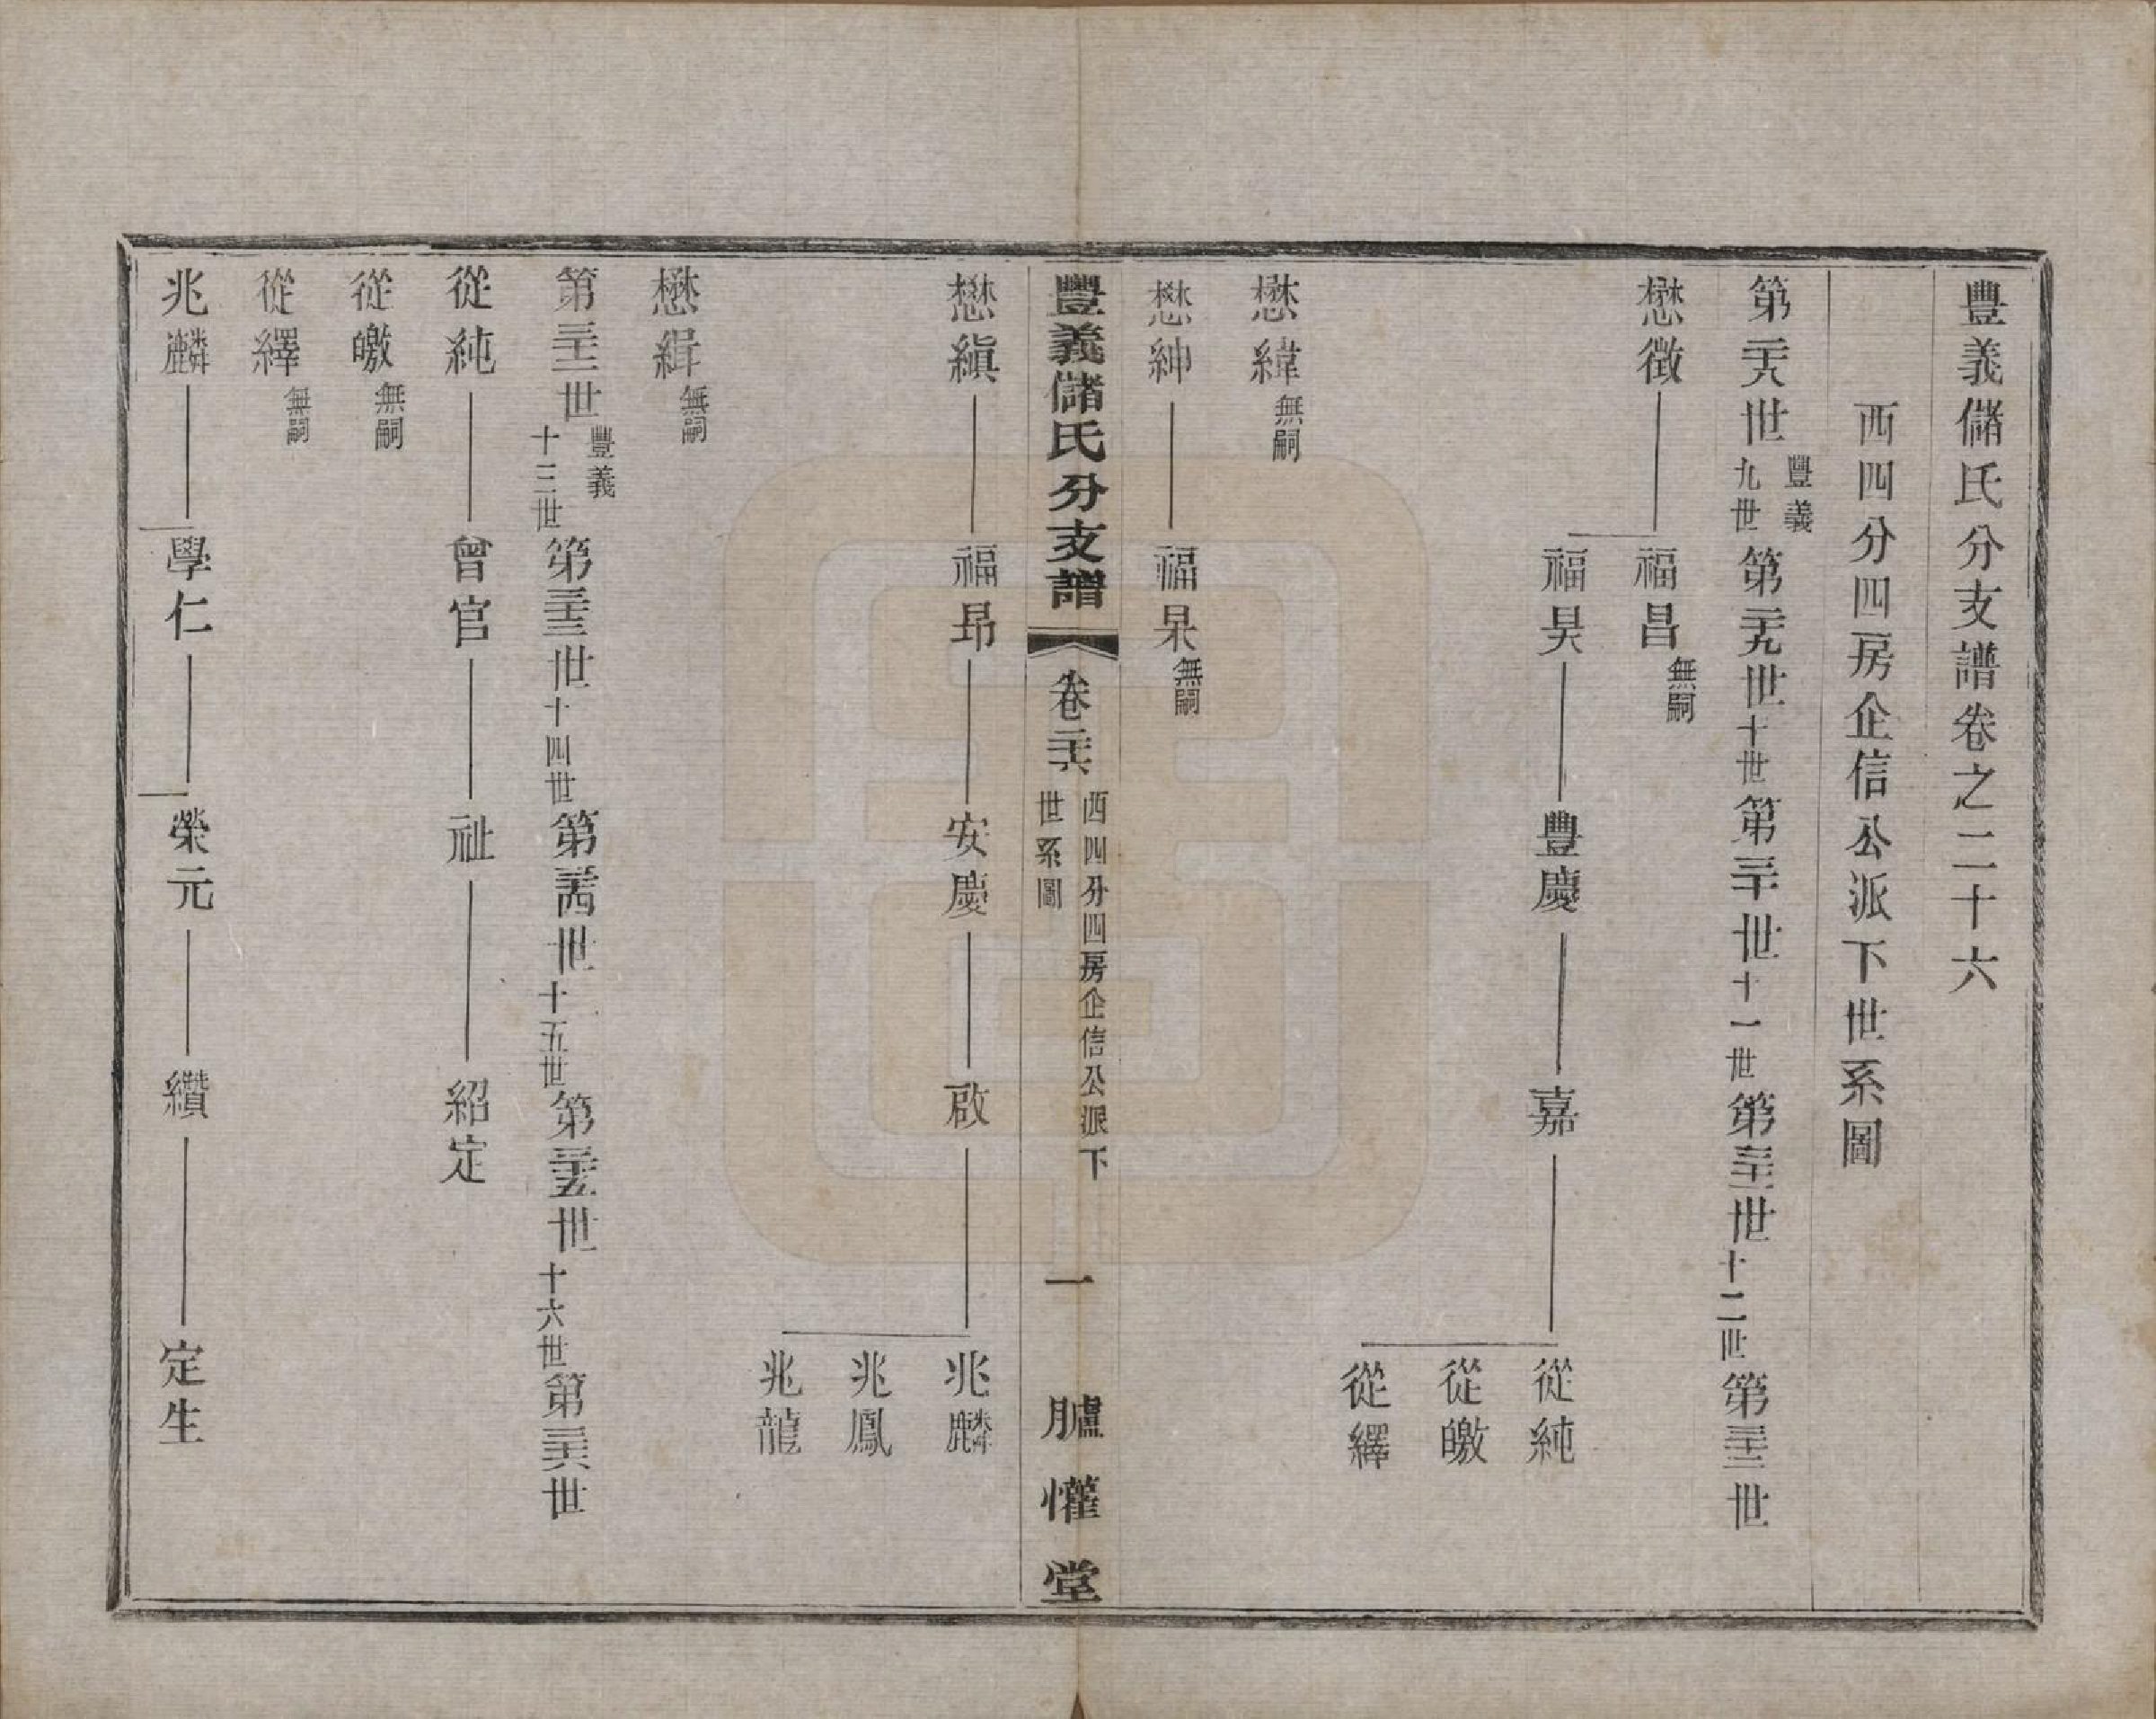 豐義儲氏分支譜卷之二十六
西四分四房企信公派下世系圖
第二十八世豐義九世第二十九世十世第三十世十一世第三十一世十二世第三十二世
懋徵 福昌無嗣
福昊 豐慶 嘉 從純
從皦
從繹
懋緯無嗣
懋紳 福杲無嗣
豐義儲氏分支譜 卷二十六 西四分四房企信公派下世系圖 一 臚懽堂
懋縝 福昂 安慶 啟 兆麟
兆鳳
兆龍
懋緝無嗣
第三十二世豐義十三世第三十三世十四世第三十四世十五世第三十五世十六世第三十六世
從純 曾官 祉 紹定
從皦無嗣
從繹無嗣
兆麟 學仁 榮元 纘 定生